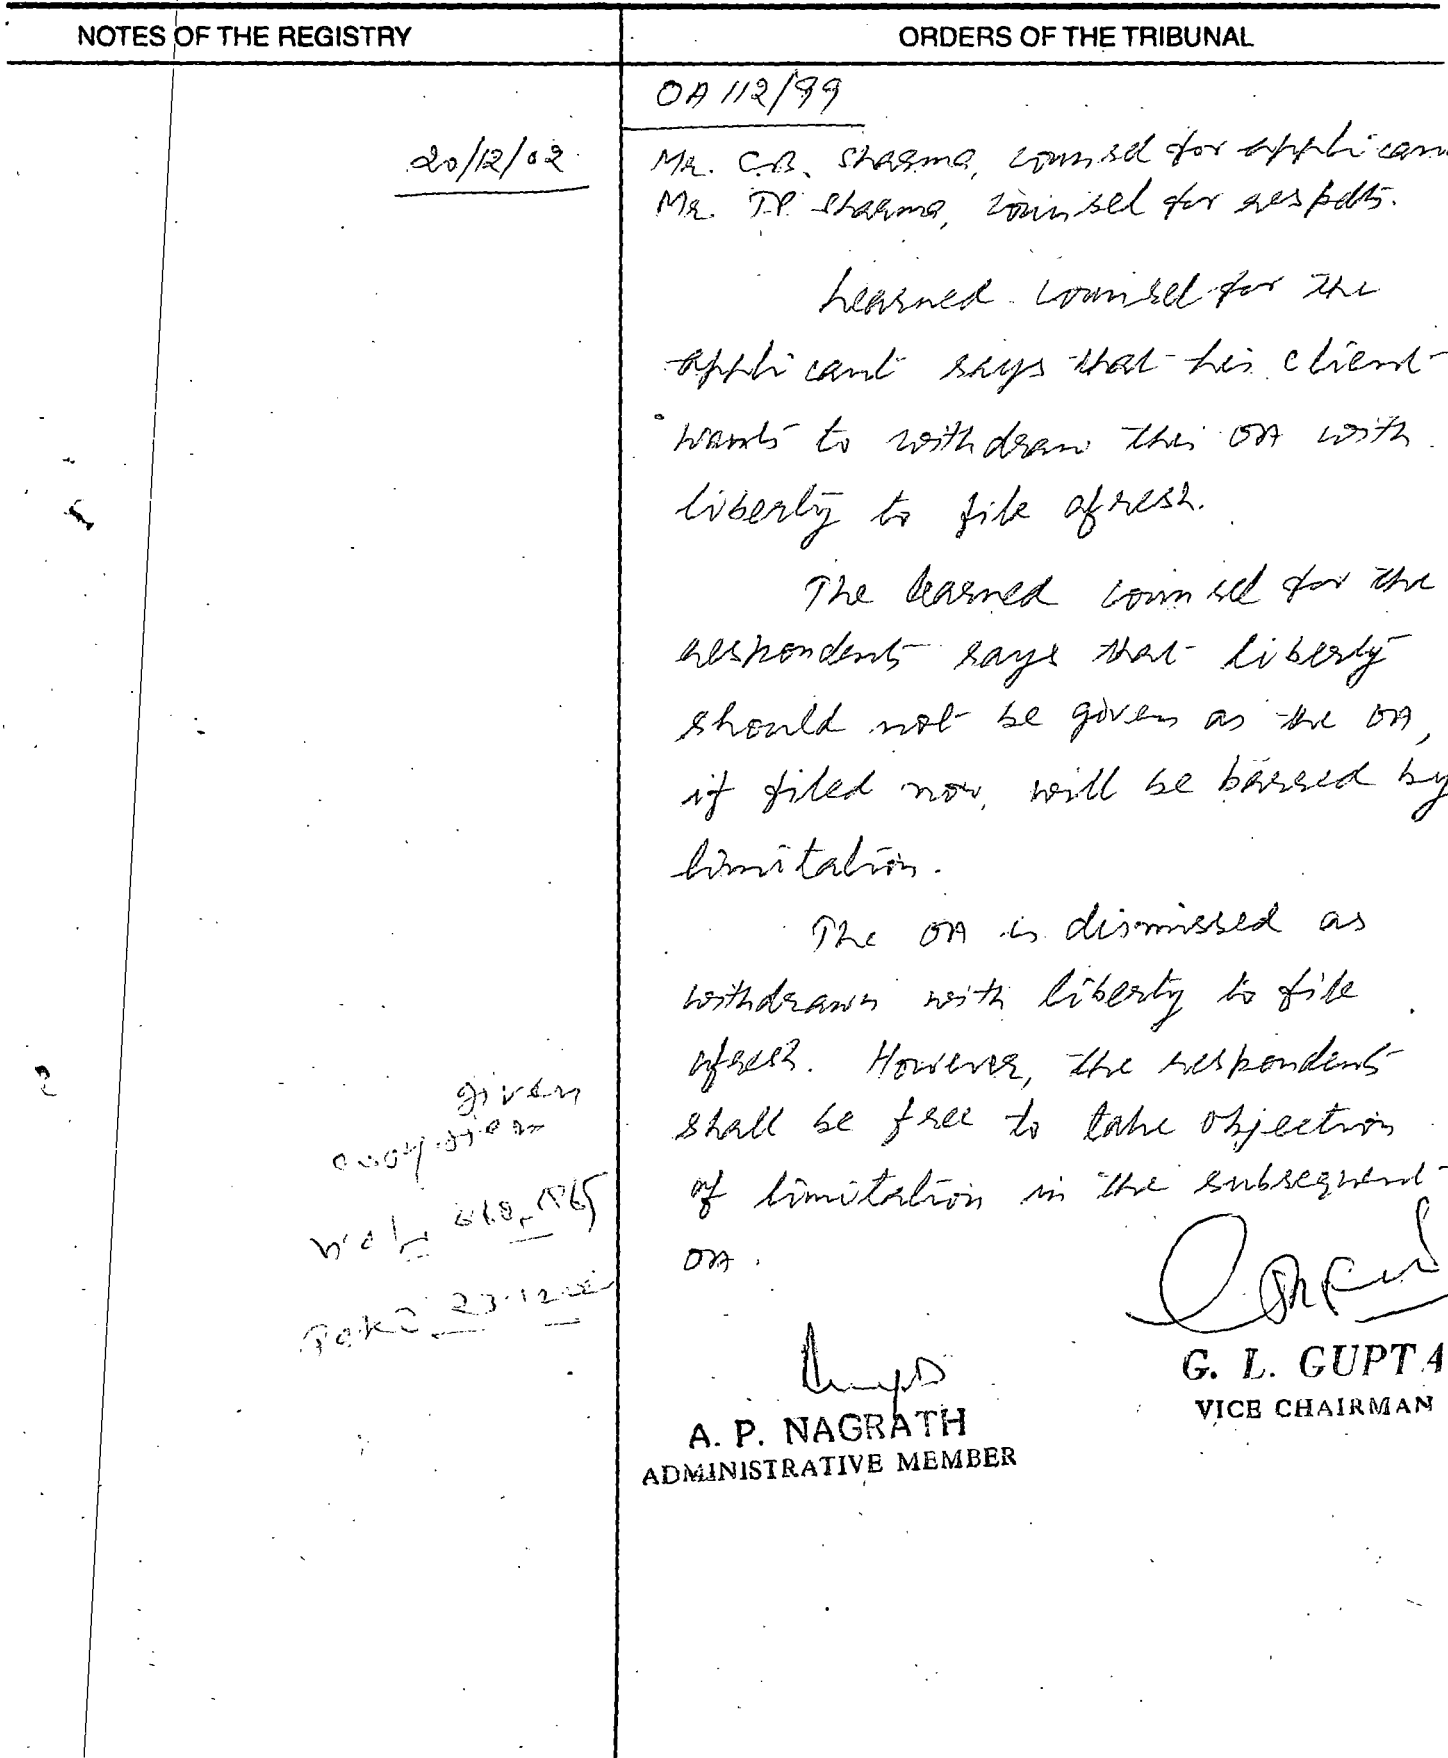 NOTES OF THE REGISTRY
ORDERS OF THE TRIBUNAL
OA 112/99
20/12/02
Mr. C.B. Sharma, counsel for applican
Mr. T.P. Sharma, counsel for respdts.
Learned counsel for the
applicant says that his client
wants to withdraw this OA with
liberty to file afresh.
The learned counsel for the
respondents says that liberty
should not be given as the OA,
if filed now, will be barred by
limitation.
The OA is dismissed as
withdrawn with liberty to file
afresh. However, the respondents
shall be free to take objection
of limitation in the subsequent
OA.
given
23.12
A. P. NAGRATH
ADMINISTRATIVE MEMBER
G. L. GUPTA
VICE CHAIRMAN